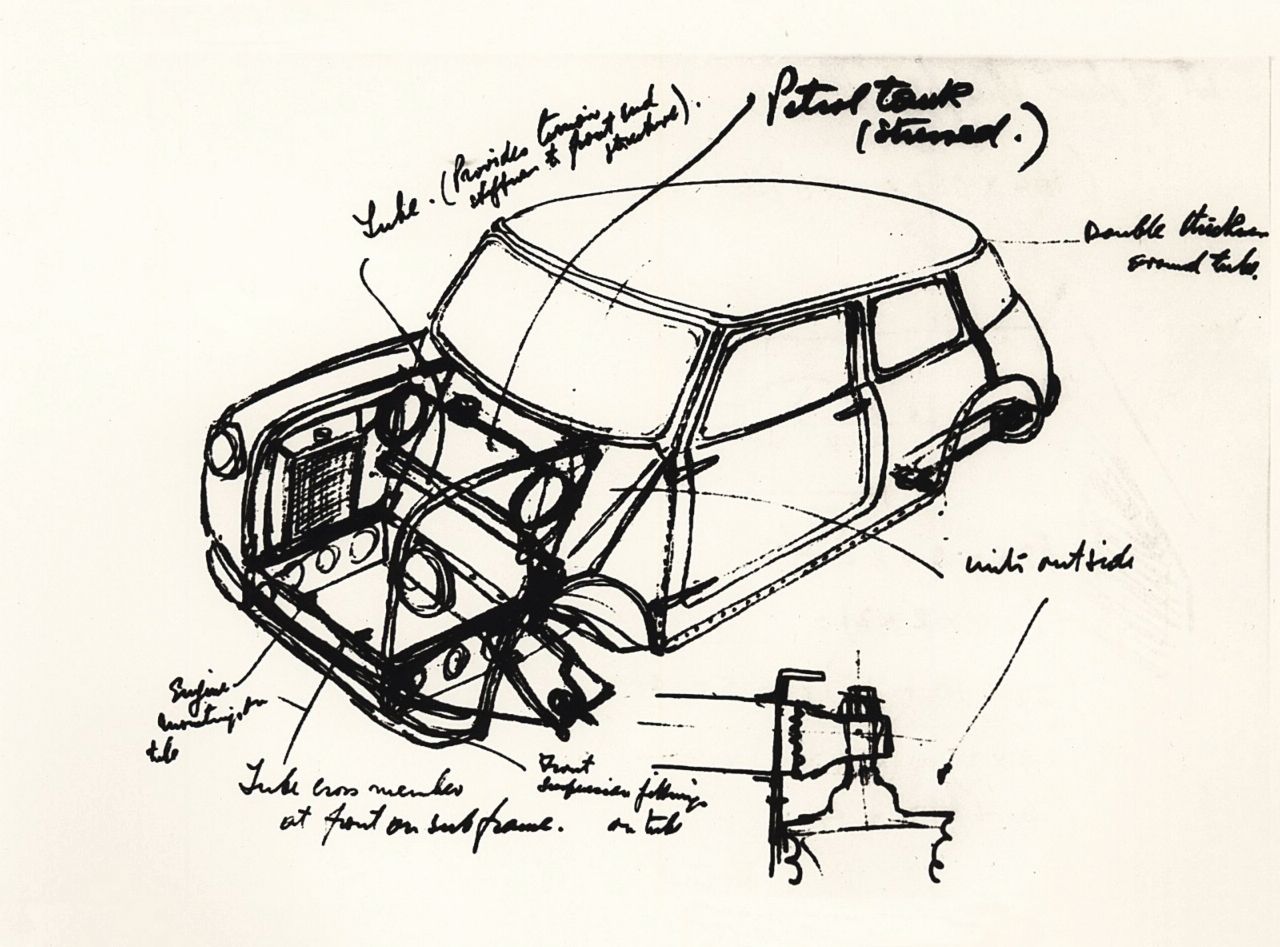 Petrol tank
(stressed.)
Tube. (Provides torsion
stiffness to front end
structure).
Double thickness
around tube.
units outside
Engine
mountings on
tube
Tube cross member
at front on subframe.
Front
suspension fittings
on tube